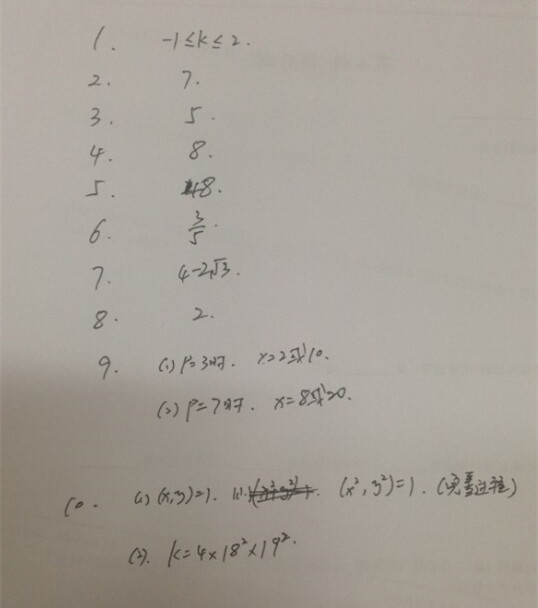 1. -1≤k≤2.
2. 7.
3. 5.
4. 8.
5. 48.
6. 3/5.
7. 4-2√3.
8. 2.
9. (1) P=3时. x=2或10.
(2) P=7时. x=8或20.
10. (1) (x,y)=1. (x²,y²)=1. (完善过程)
(2). k=4×18²×19².